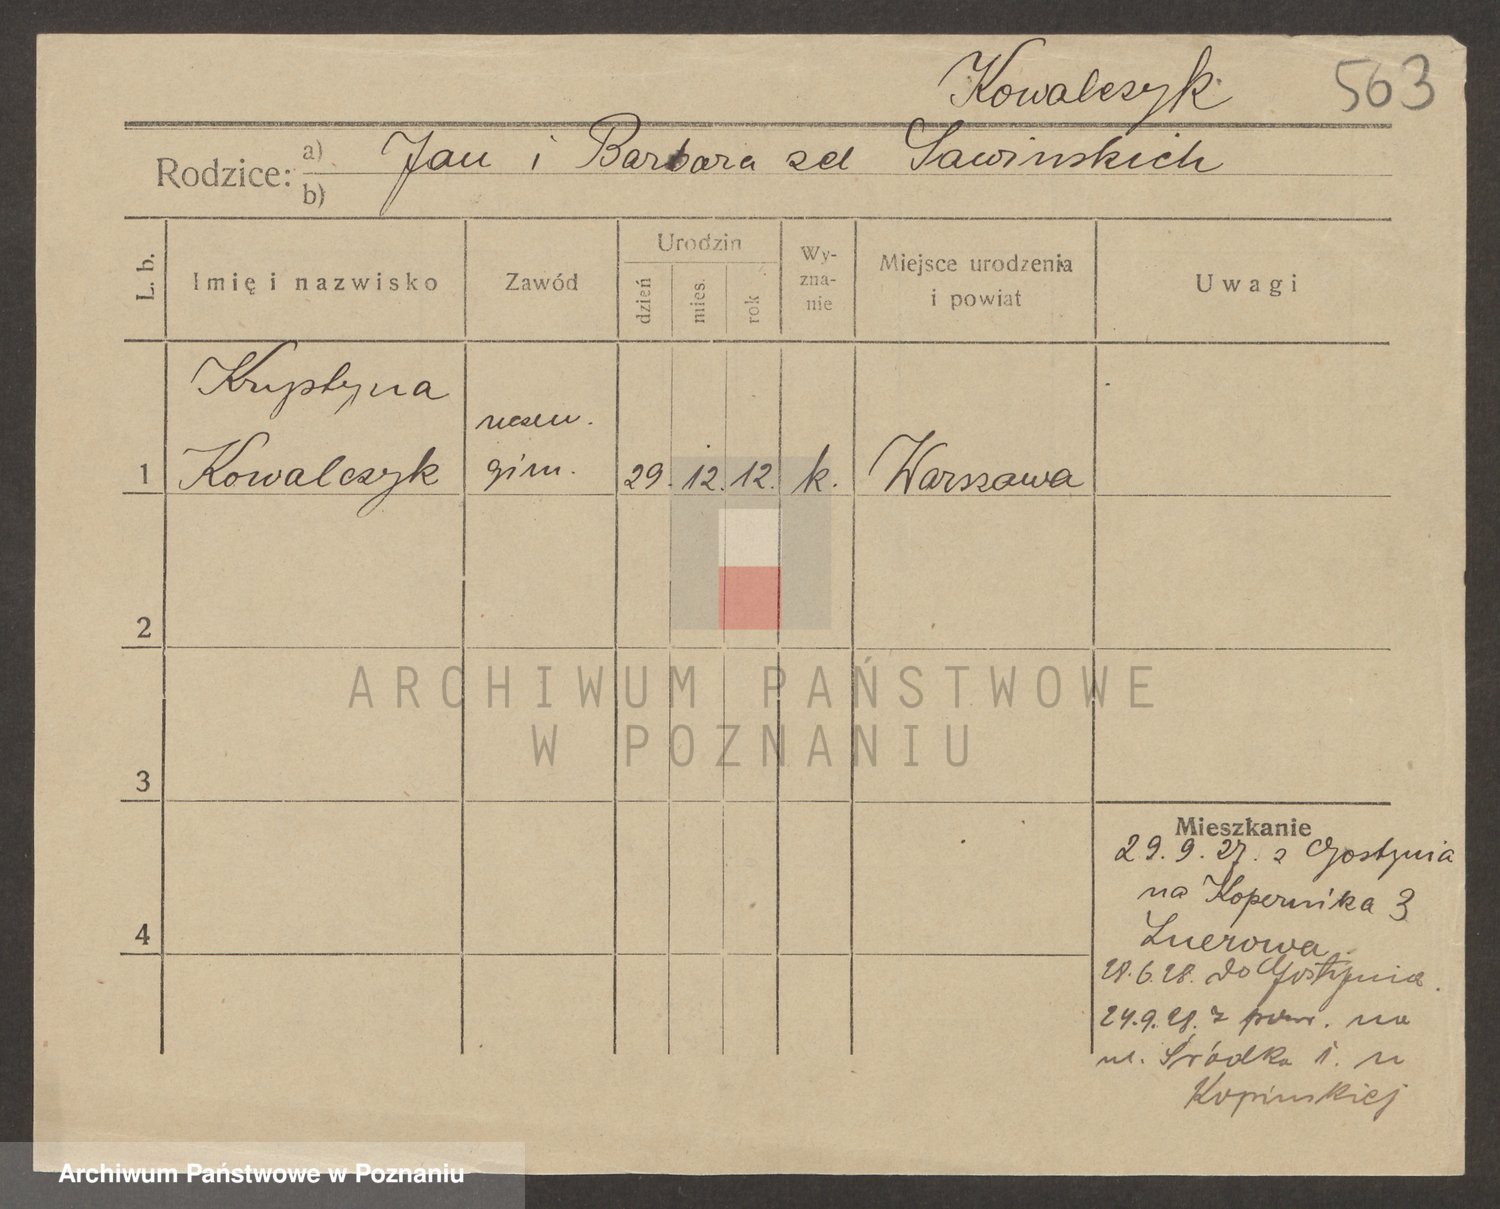 Kowalczyk 563
Rodzice: a) Jan i Barbara zd Sawinskich
b)
L. b.
Imię i nazwisko
Zawód
Urodzin
dzień
mies.
rok
Wy-
zna-
nie
Miejsce urodzenia
i powiat
Uwagi
Krystyna
gim.
1 Kowalczyk 29. 12. 12. k. Warszawa
2
3
4
ARCHIWUM PAŃSTWOWE
W POZNANIU
Mieszkanie
29.9.27. z Gostynia
na Kopernika 3
28.6.28. do Gostynia.
24.9.28. z pow. na
ul. Śródka 1. u
Kopinskiej
Archiwum Państwowe w Poznaniu